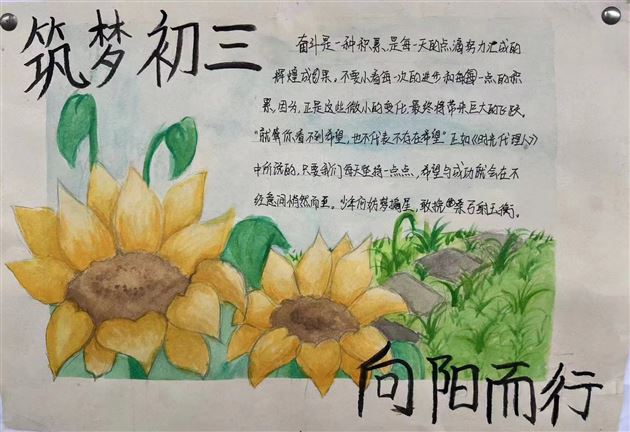 筑梦初三
奋斗是一种积累，是每一天的点滴努力汇成的
辉煌成果。不要小看每一次的进步和每一点的积
累，因为，正是这些微小的变化，最终将带来巨大的飞跃。
“就算你看不到希望，也不代表不存在希望”正如《时光代理人》
中所说的，只要我们每天坚持一点点，希望与成功就会在不
经意间悄然而至。少年何妨梦摘星，敢挽桑弓射玉衡。
向阳而行